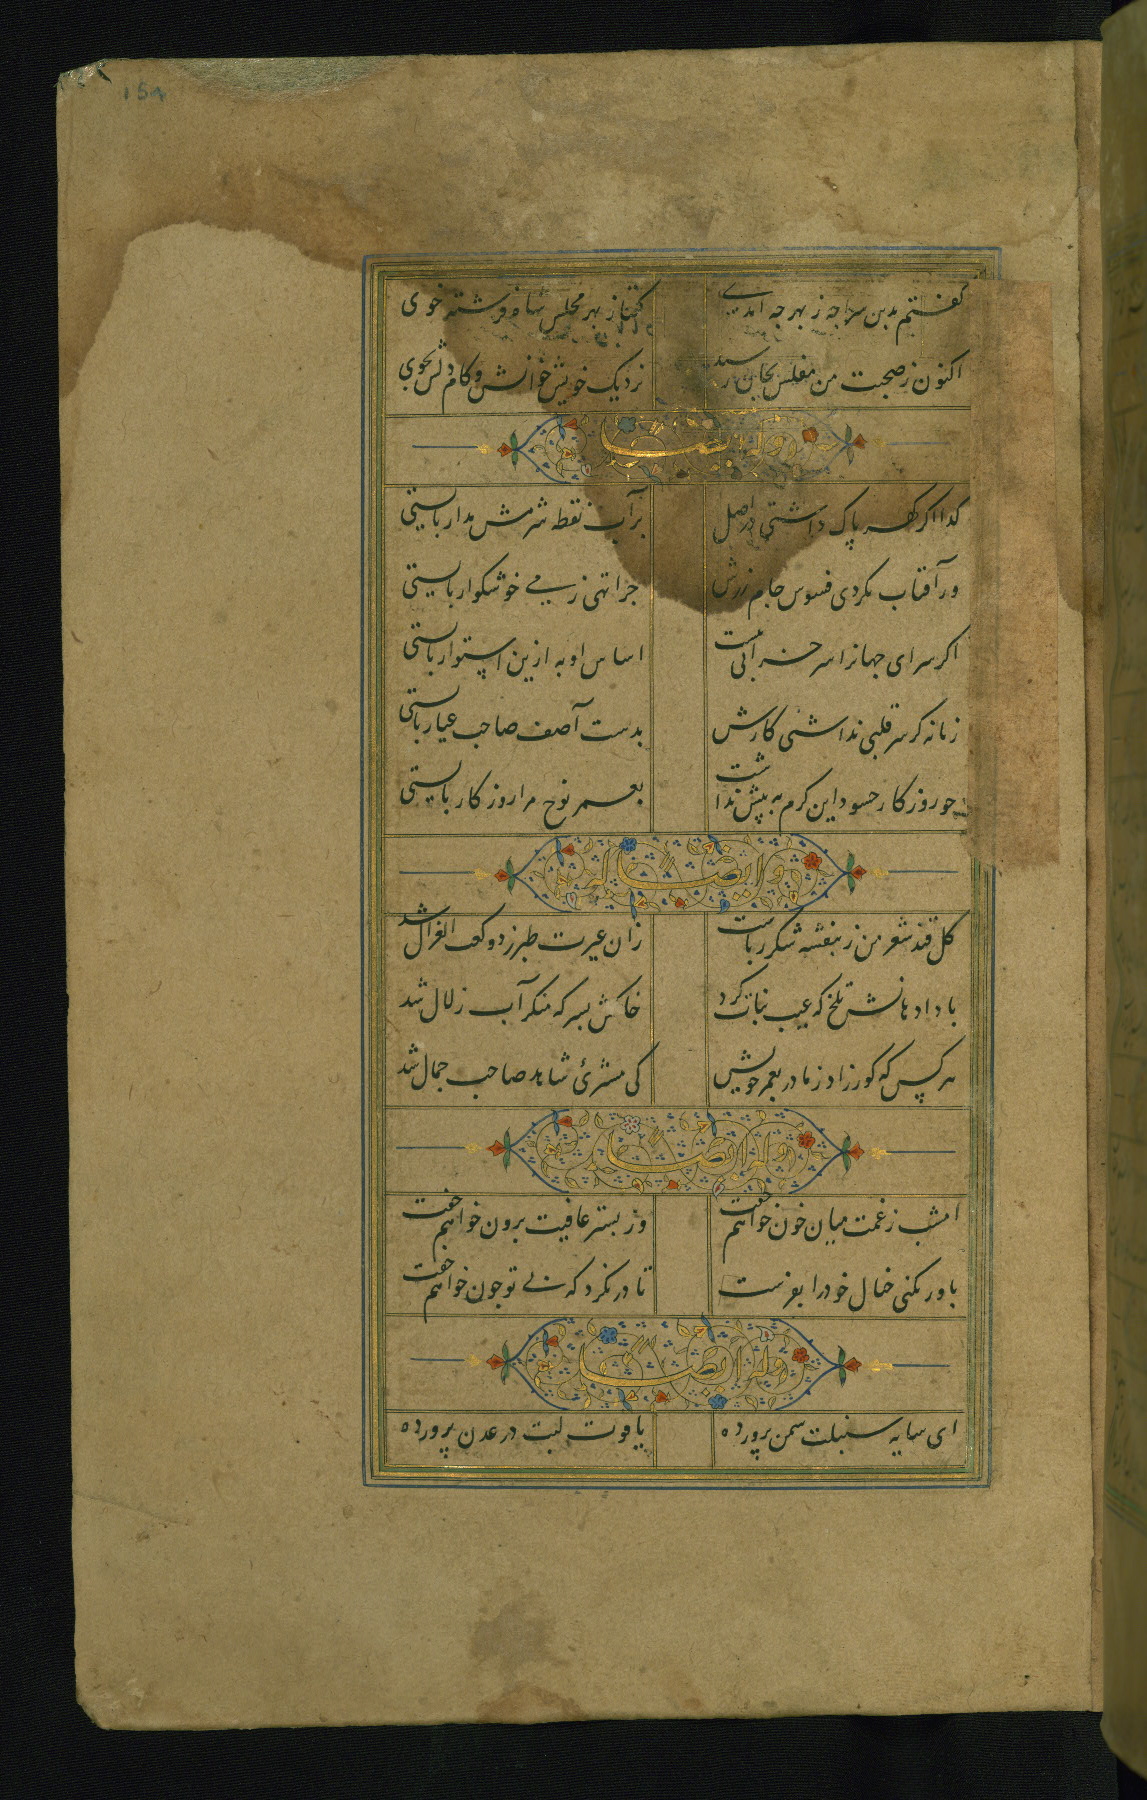 ۱۵۸
گفتم بدین سراچه ز بهر چه آمدی گفتا ز بهر مجلس شاه فرشته خوی
اکنون ز صحبت من مفلس بجان رسید نزدیک خویش خوانش و کام دلش بجوی
وله ایضا
گدا اگر گهر پاک داشتی در اصل بر آب نقطه شرمش مدار بایستی
ور آفتاب نکردی فسوس جام زرش چرا تهی ز می خوشگوار بایستی
اگر سرای جهانرا سر خرابی نیست اساس او به ازین استوار بایستی
زمانه گر سر قلبی نداشتی کارش بدست آصف صاحب عیار بایستی
چو روزگار جز این کرم به پیش نداشت بعمر نوح مرا روزگار بایستی
وله ایضا
کلک قند شعر من ز بنفشه شکر رباست زان غیرت طبرزد و کعب الغزال شد
بادا دهانش تلخ که عیب نبات کرد خاکش بسر که منکر آب زلال شد
هر کس که کور زاد ز مادر بعمر خویش کی مشتری شاهد صاحب جمال شد
وله ایضا
امشب ز غمت میان خون خواهم خفت وز بستر عافیت برون خواهم خفت
باور نکنی خیال خود را بفرست تا درنگرد که بی تو چون خواهم خفت
وله ایضا
ای سایه سنبلت سمن پرورده یاقوت لبت در عدن پرورده